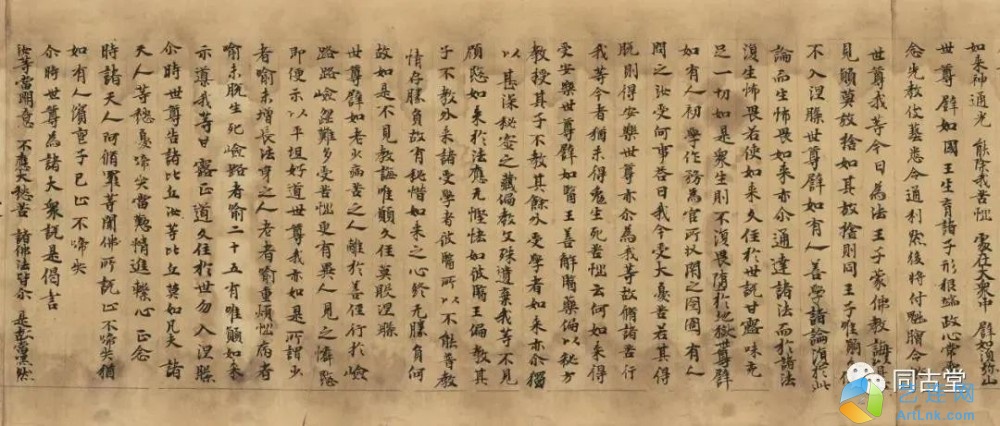 如来神通光 能除我苦惱 處在大衆中 譬如須弥山
世尊譬如國王生育諸子形皃端政心常
念先教伎藝悉令通利然後將付魁膾令
世尊我等今日為法王子蒙佛教誨
見願莫放捨如其放捨則同王子唯願
不入涅槃世尊譬如有人善學諸論復於此
論而生怖畏如来亦尒通達諸法而於諸法
復生怖畏若使如来久住於世說甘露味充
足一切如是衆生則不復畏墮於地獄世尊譬
如有人初學作務為官所收閇之囹圄有人
問之汝受何事荅曰我今受大憂苦若其得
脱則得安樂世尊亦尒為我等故脩諸苦行
我等今者猶未得免生死苦惱云何如来得
受安樂世尊譬如醫王善解醫藥偏以秘方
教授其子不教其餘外受學者如来亦尒獨
以甚深秘密之藏偏教文殊遺棄我等不見
顧愍如来於法應无慳悋如彼醫王偏教其
子不教外来諸受學者彼醫所以不能普教
情存勝負故有秘惜如来之心終无勝負何
故如是不見教誨唯願久住莫般涅槃
世尊譬如老少病苦之人離於善徑行於嶮
路路嶮澀難多受苦惱更有異人見之憐愍
即便示以平坦好道世尊我亦如是所謂少
者喻未增長法身之人老者喻重煩惱病者
喻未脱生死嶮路者喻二十五有唯願如来
示導我等甘露正道久住於世勿入涅槃
尒時世尊告諸比丘汝等比丘莫如凡夫諸
天人等愁憂啼哭當懃精進繫心正念
時諸天人阿脩羅等聞佛所説止不啼哭猶
如有人殯喪子已止不啼哭
尒時世尊為諸大衆説是偈言
汝等當開意 不應大愁苦 諸佛法皆尒 是故當默然
同古堂
艺连网
ArtLnk.com